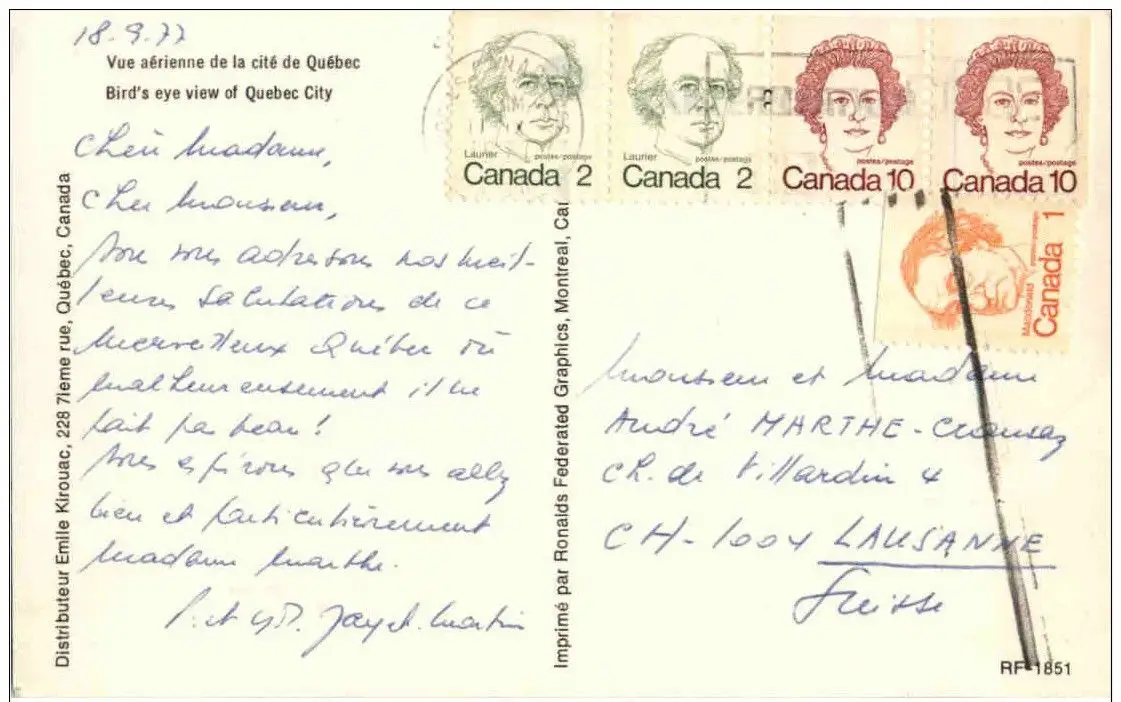 18.9.77
Vue aérienne de la cité de Québec
Bird's eye view of Quebec City
Chère Madame,
Cher Monsieur,
Nous vous adressons nos meil-
leures salutations de ce
merveilleux Québec où
malheureusement il ne
fait pas beau!
Nous espérons que vous allez
bien et particulièrement
Madame Marthe.
P. et
Distributeur Emile Kirouac, 228 7ieme rue, Québec, Canada
Imprimé par Ronalds Federated Graphics, Montreal, Can
Laurier
postes/postage
Canada 2
Laurier
postes/postage
Canada 2
postes/postage
Canada 10
postes/postage
Canada 10
Macdonald
postes/postage
Canada 1
Monsieur et Madame
André MARTHE-
Ch. de Villardin 4
CH-1004 LAUSANNE
Suisse
RF-1851